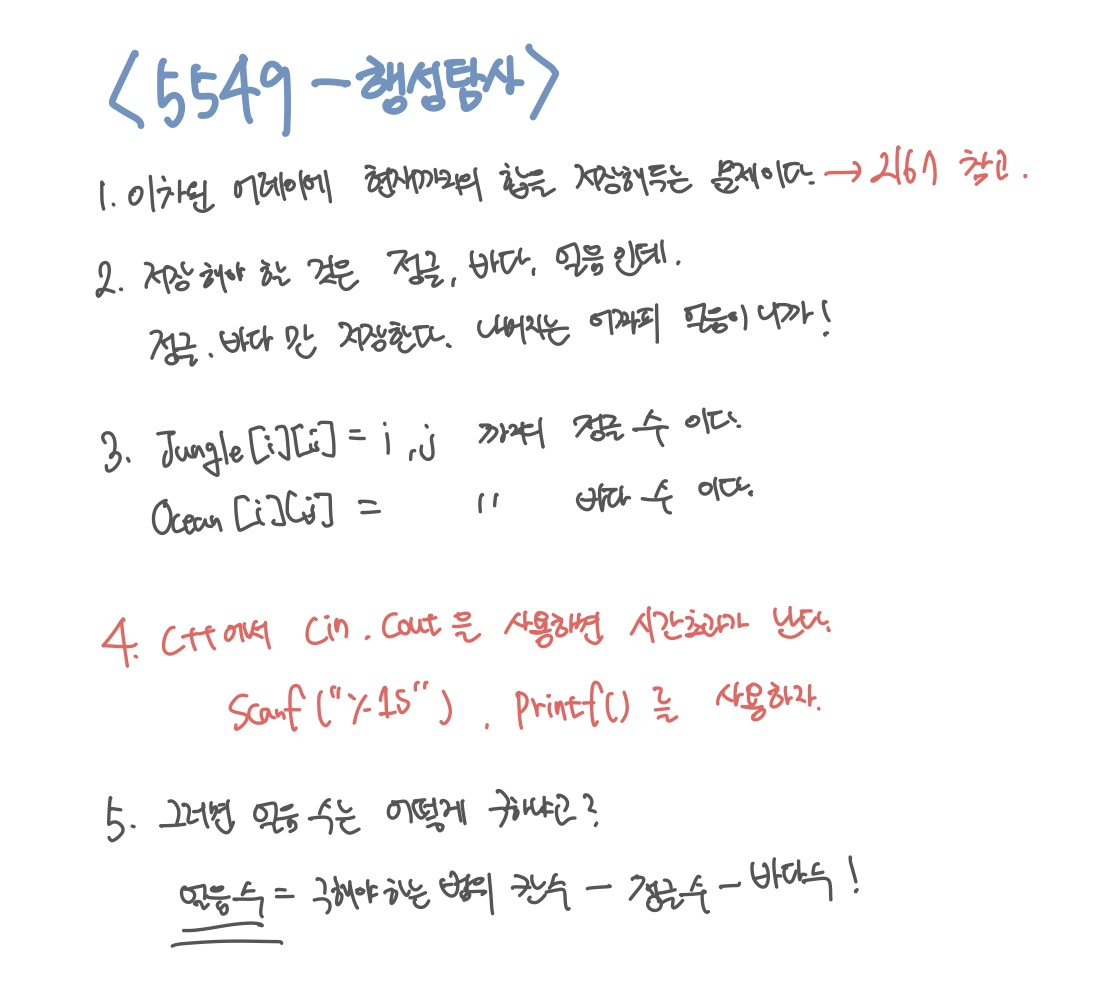 <5549 - 행성탐사>
1. 이차원 어레이에 현재까지의 합을 저장해두는 문제이다. → 2167 참고.
2. 저장해야 할 것은 정글, 바다, 얼음인데.
정글, 바다 만 저장한다. 나머지는 어짜피 얼음이니까!
3. Jungle[i][j] = i, j 까지의 정글 수 이다.
Ocean[i][j] = 〃 바다 수 이다.
4. C++에서 Cin, Cout을 사용하면 시간초과가 난다.
Scanf("%1s"), Printf()를 사용하자.
5. 그러면 얼음 수는 어떻게 구하냐고?
얼음 수 = 구해야 하는 범위 칸 수 - 정글 수 - 바다 수!